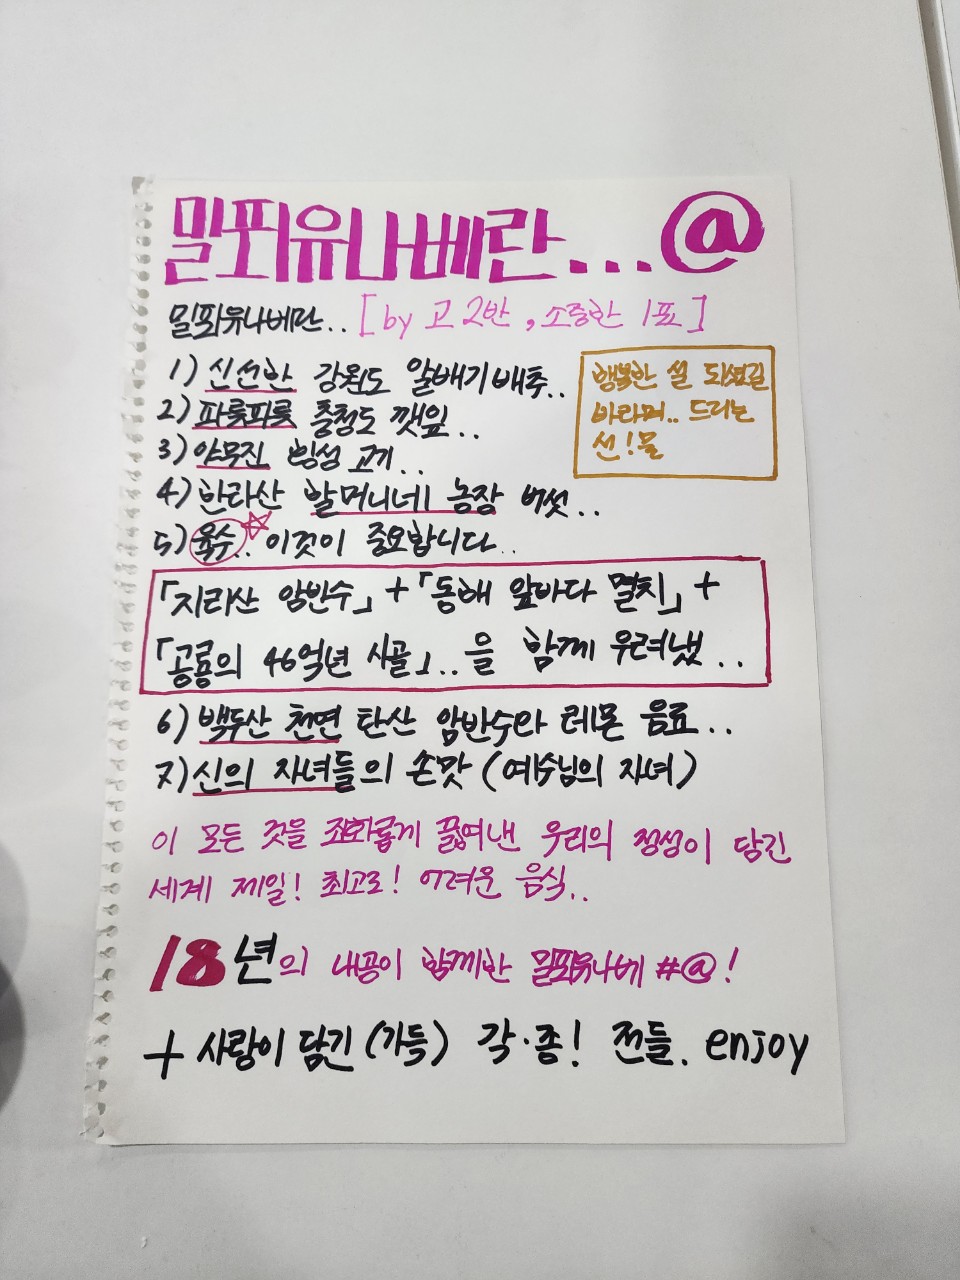 밀푀유나베란... @
밀푀유나베란.. [by 고2반, 소중한 1표]
1) 신선한 강원도 알배기배추..
2) 파릇파릇 충청도 깻잎..
3) 야무진 횡성 고기..
4) 한라산 할머니네 농장 버섯..
5) 육수.. 이것이 중요합니다..
행복한 설 되셨길
바라며.. 드리는
선!물
「지리산 암반수」+「동해 앞바다 멸치」+
「공룡의 46억년 사골」..을 함께 우려냈..
6) 백두산 천연 탄산 암반수와 레몬 음료..
7) 신의 자녀들의 손맛 (예수님의 자녀)
이 모든 것을 조화롭게 끓여낸 우리의 정성이 담긴
세계 제일! 최고로! 어려운 음식..
18년의 내공이 함께한 밀푀유나베 #@!
+ 사랑이 담긴 (가득) 각·종! 전들. enjoy